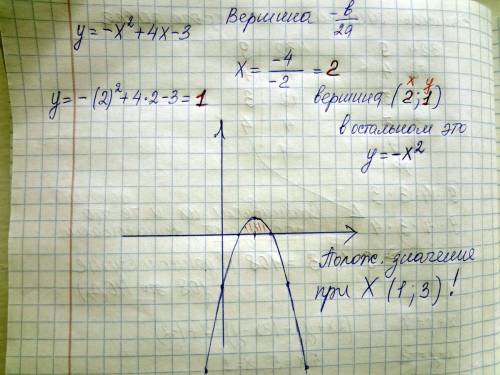 y = -x² + 4x - 3
Вершина -в/2a
x = -4/-2 = 2
y = -(2)² + 4·2 - 3 = 1
x y
вершина (2;1)
в остальном это
y = -x²
Полож. значение
при X (1;3)!